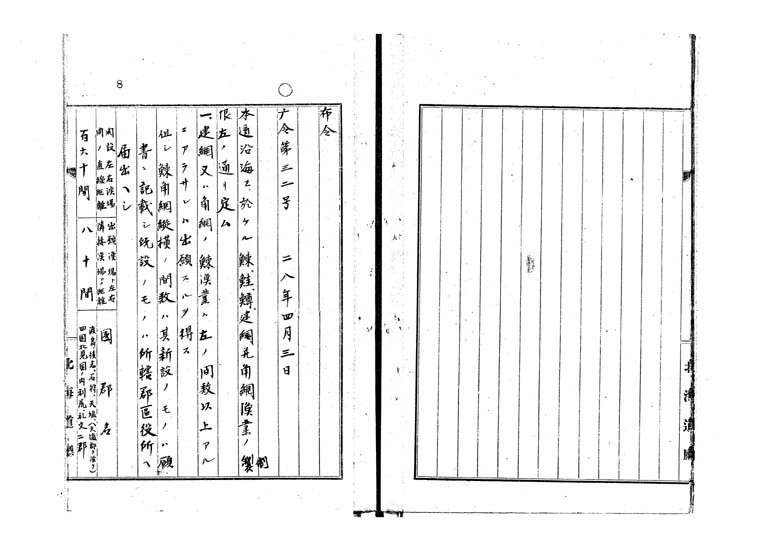 布令
庁令第三二号 二八年四月三日
本道沿海ニ於ケル鰊、鮭、鱒、建網并角網漁業ノ製制
限左ノ通リ定ム
一、建網又ハ角網ノ鰊漁業ハ左ノ間数以上アル
ニアラサレハ出願スルヲ得ス
但シ鰊角網縦横ノ間数ハ其新設ノモノハ願
書ニ記載シ既設ノモノハ所轄郡区役所ヘ
届出ヘシ
間ノ直径距離
出願漁場ト左右
隣接漁場ノ距離
國郡名
百六十間
八十間
四国北見国ノ内利尻礼文二郡
北海道廳
北海道廳
8